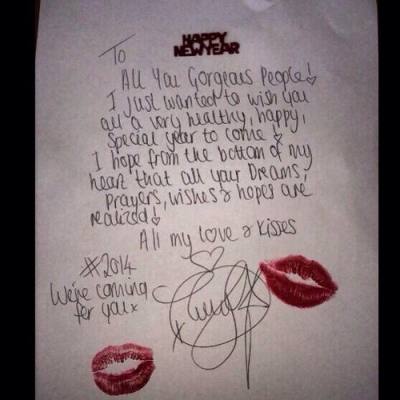 HAPPY
NEW YEAR
To
All You Gorgeous People!
I just wanted to wish you
all a very healthy, happy,
special year to come!
I hope from the bottom of my
heart that all your Dreams,
prayers, wishes & hopes are
realized!
All my love & kisses
#2014
We're coming
for you x